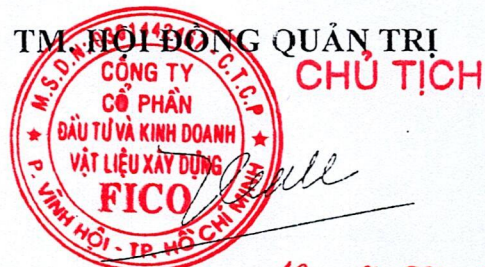 TM. HỘI ĐỒNG QUẢN TRỊ
CHỦ TỊCH
CÔNG TY
CỔ PHẦN
ĐẦU TƯ VÀ KINH DOANH
VẬT LIỆU XÂY DỰNG
FICO
P. VĨNH HỘI - TP. HỒ CHÍ MINH